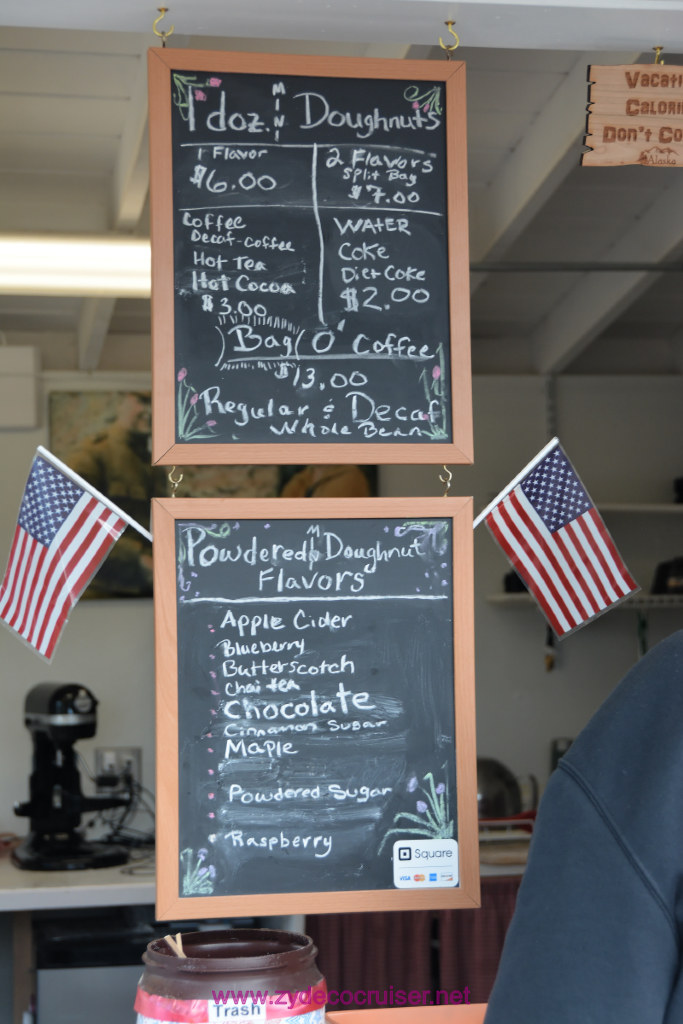 1 doz. MINI Doughnuts
1 Flavor
$6.00
2 Flavors
Split Bag
$7.00
Coffee
Decaf-Coffee
Hot Tea
Hot Cocoa
$3.00
WATER
Coke
Diet Coke
$2.00
Bag O' Coffee
$13.00
Regular & Decaf
Whole Bean
Powdered Doughnut
Flavors
Apple Cider
Blueberry
Butterscotch
Chai tea
Chocolate
Cinnamon Sugar
Maple
Powdered Sugar
Raspberry
Square
VISA
Calorie
Don't Co
Alaska
Trash
www.zydecocruiser.net